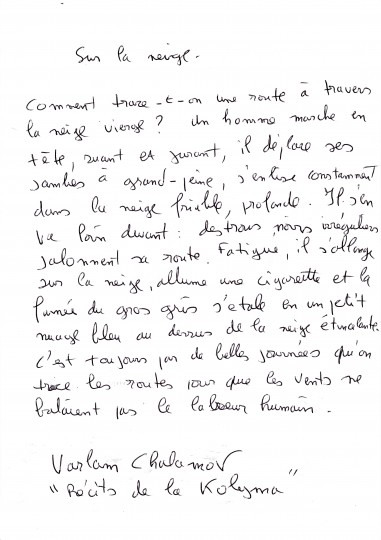 Sur la neige.
Comment trace-t-on une route à travers
la neige vierge ? Un homme marche en
tête, suant et jurant, il déplace ses
jambes à grand-peine, s'enlise constamment
dans la neige friable, profonde. Il s'en
va loin devant : des trous noirs irréguliers
jalonnent sa route. Fatigué, il s'allonge
sur la neige, allume une cigarette et la
fumée du gros gris s'étale en un petit
nuage bleu au dessus de la neige étincelante.
C'est toujours par de belles journées qu'on
trace les routes pour que les vents ne
balaient pas le labeur humain.
Varlam Chalamov
"Récits de la Kolyma"